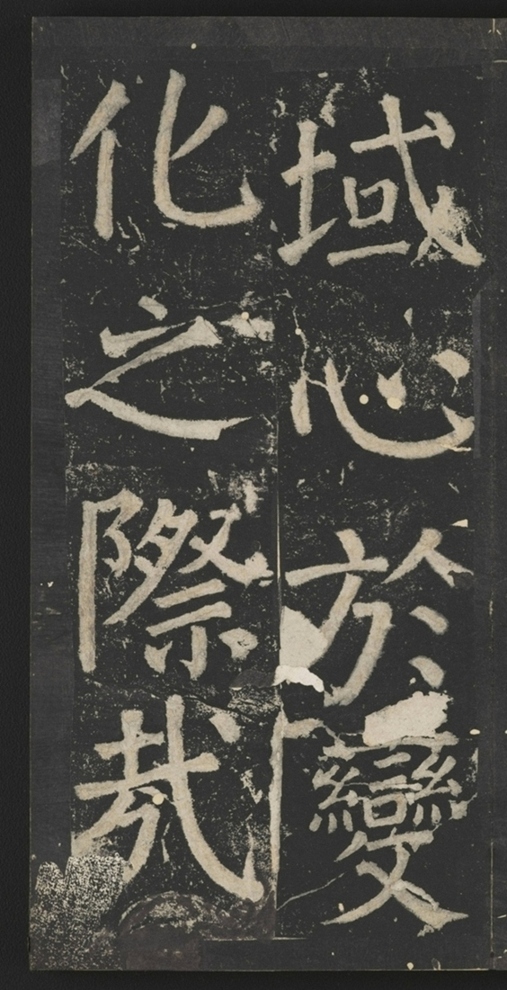 域心於變
化之際哉